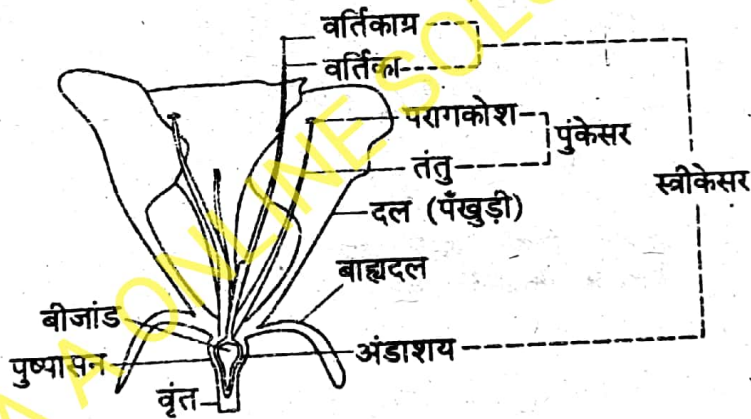 वर्तिकाग्र
वर्तिका
परागकोश
पुंकेसर
तंतु
स्त्रीकेसर
दल (पँखुड़ी)
बाह्यदल
बीजांड
अंडाशय
पुष्पासन
वृंत
A ONLINE SOL